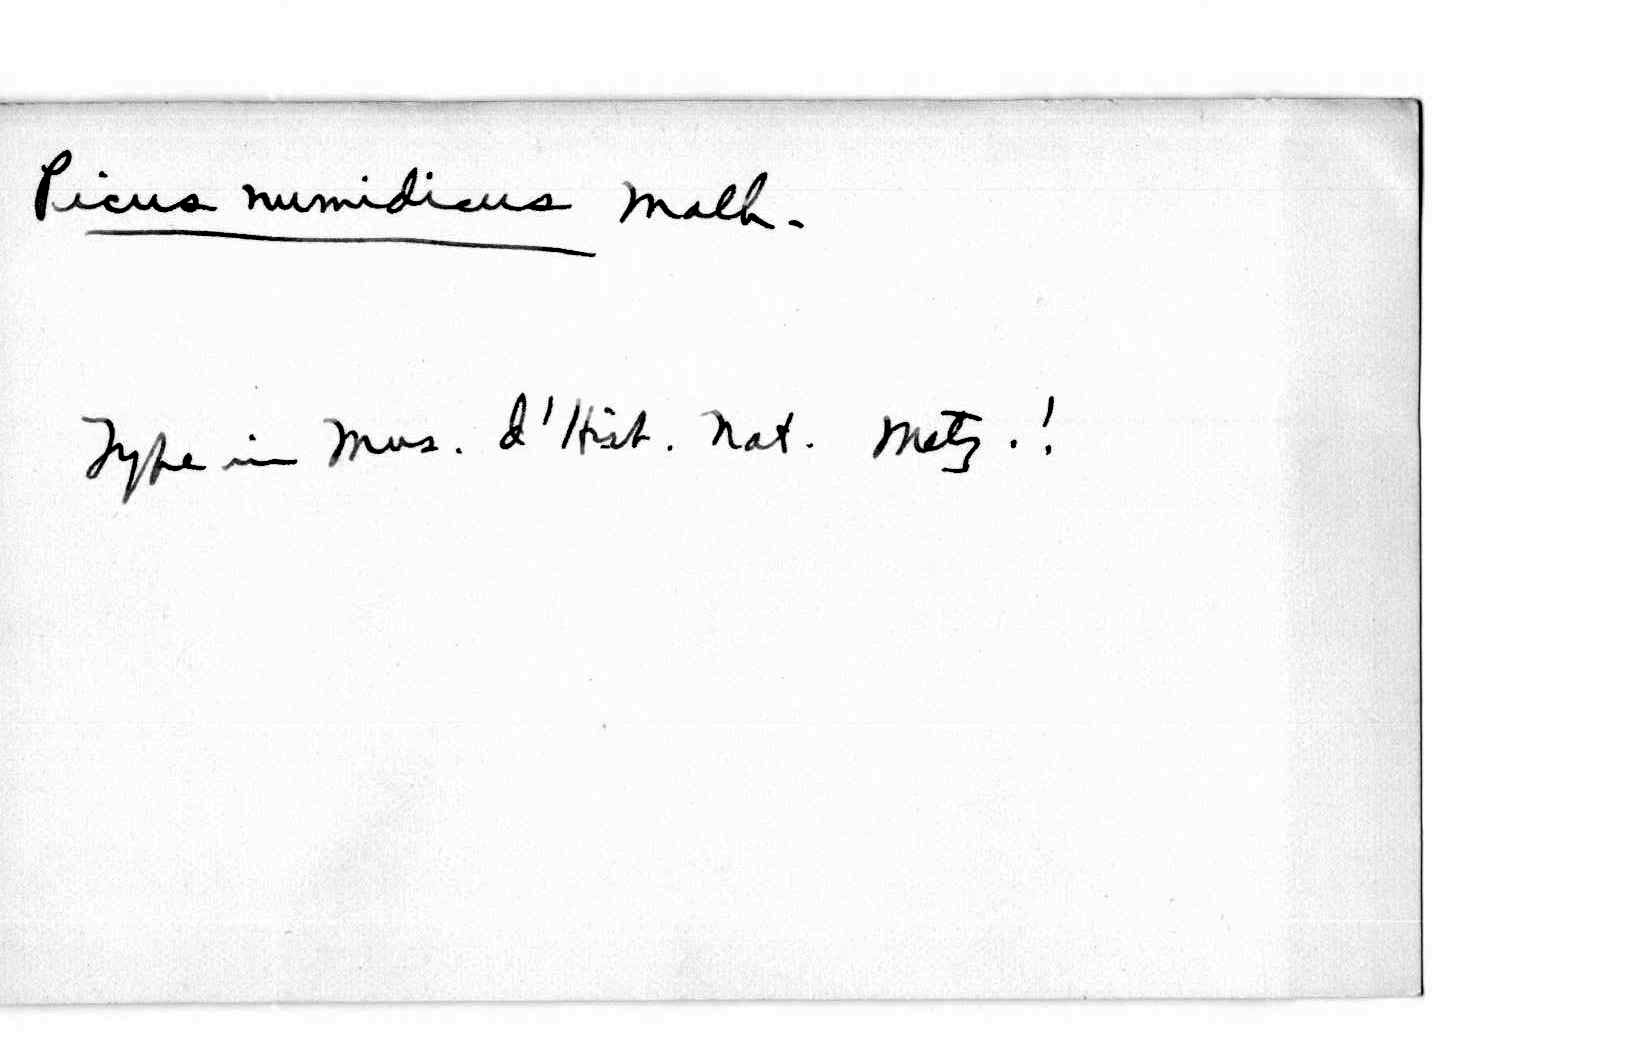 Picus numidicus Malh.
Type in Mus. d'Hist. Nat. Metz.!